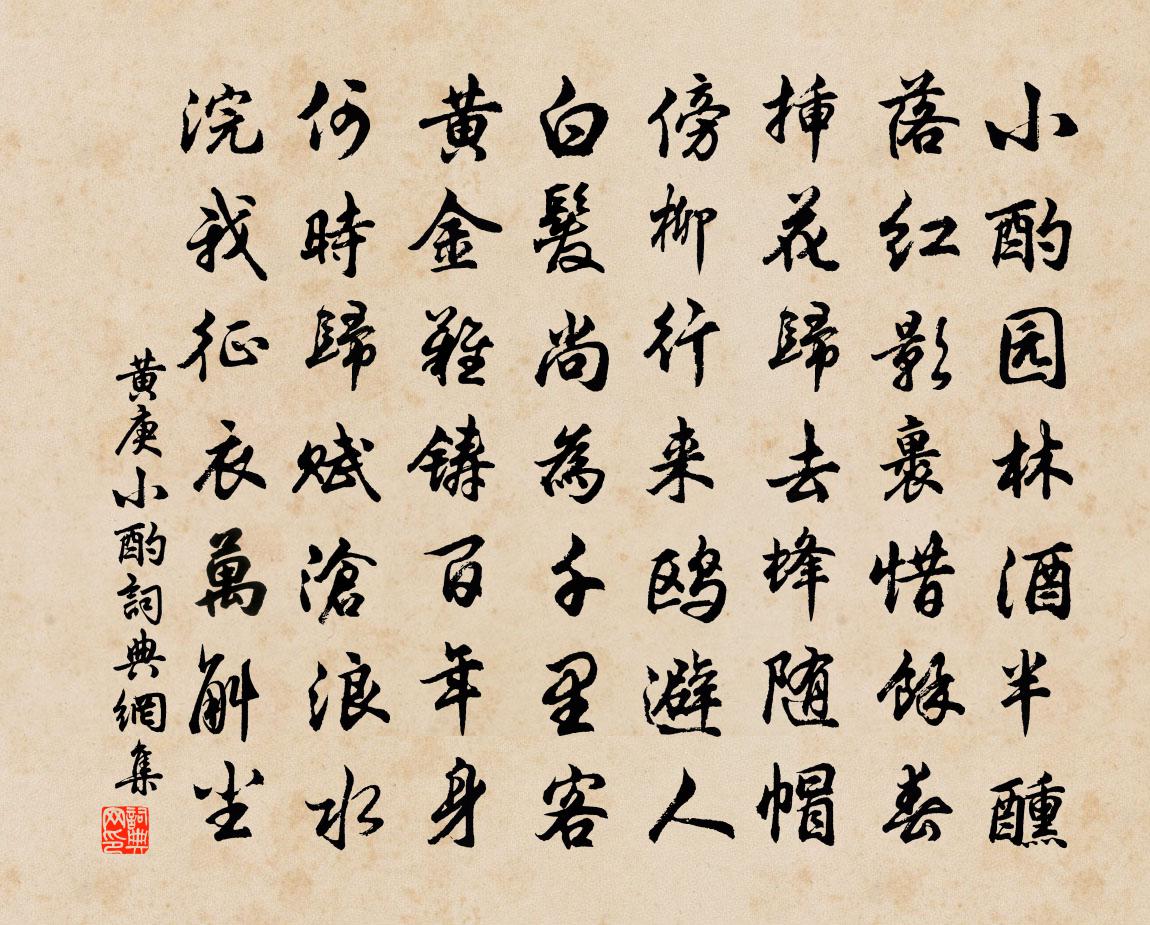 小酌园林酒半醺
落红影裏惜餘春
挿花歸去蜂随帽
傍柳行来鸥避人
白髮尚為千里客
黄金難鑄百年身
何時歸賦滄浪水
浣我征衣萬斛尘
黄庚小酌詞典網集
詞典网印